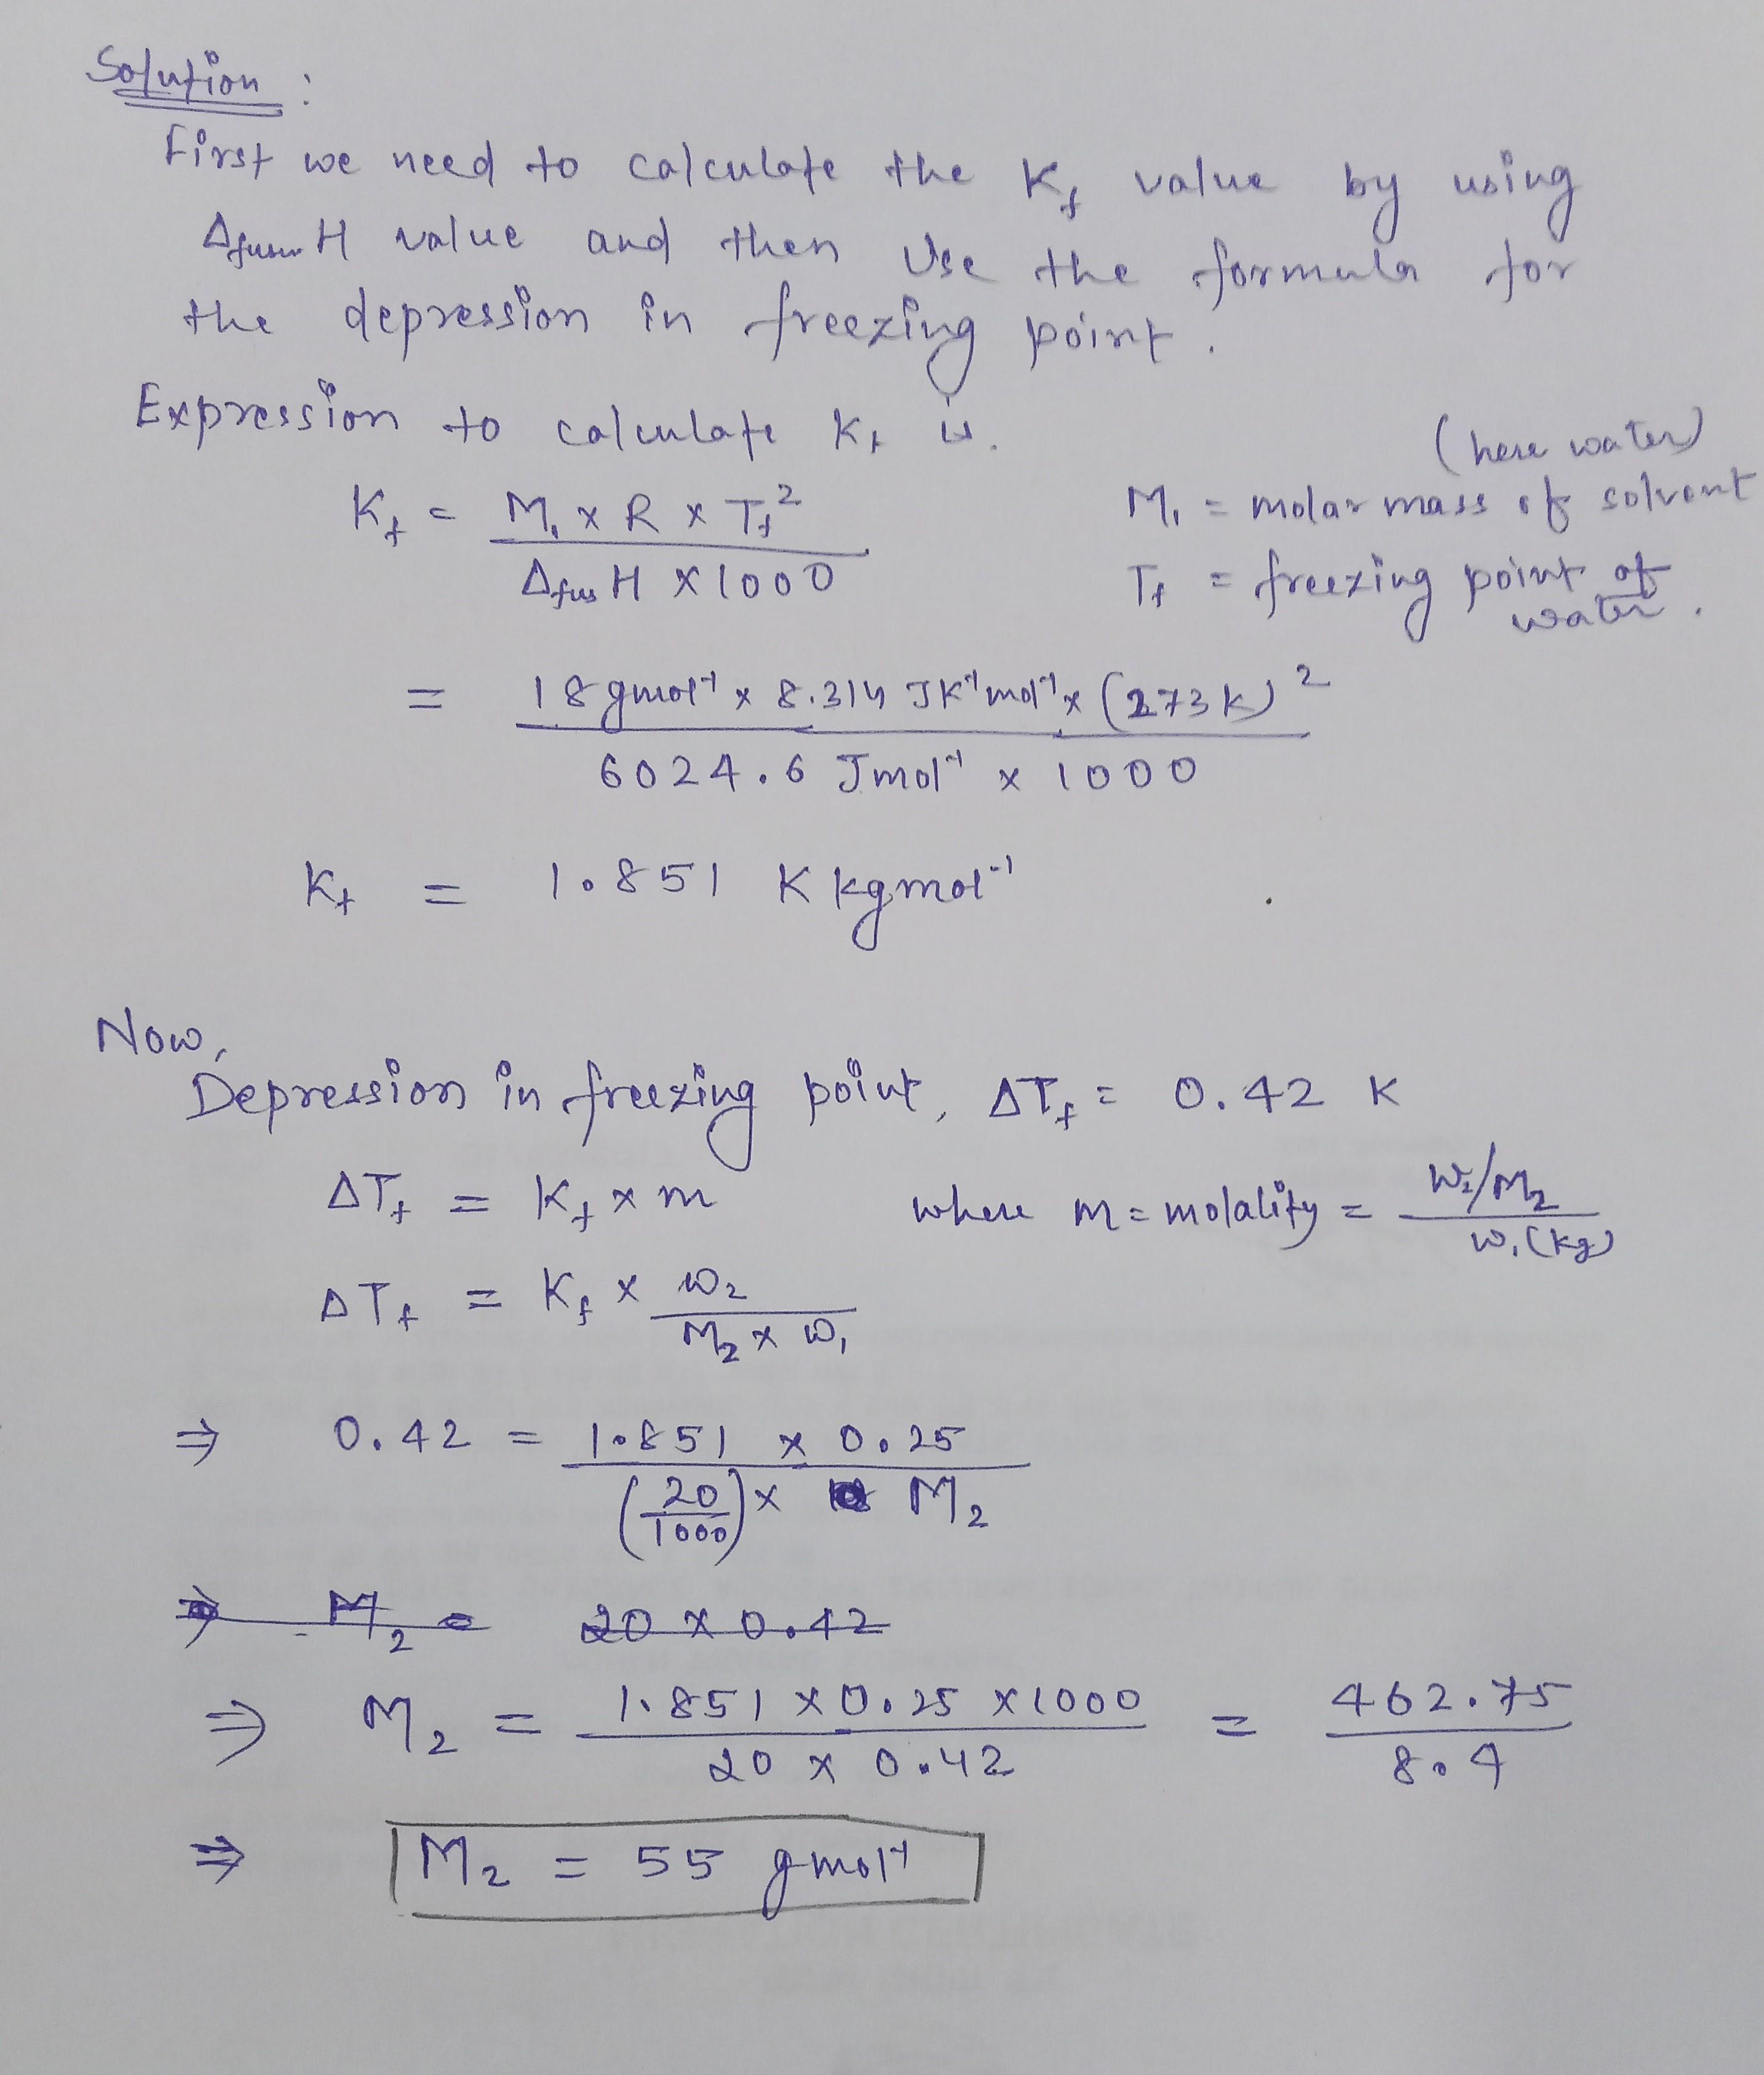 Solution :
First we need to calculate the Kf value by using
ΔfusionH value and then use the formula for
the depression in freezing point.
Expression to calculate Kf is.
(here water)
Kf = M₁ x R x Tf² / ΔfusH x 1000
M₁ = molar mass of solvent
Tf = freezing point of
water.
= 18 gmol⁻¹ x 8.314 JK⁻¹mol⁻¹ x (273K)² / 6024.6 Jmol⁻¹ x 1000
Kf = 1.851 K kgmol⁻¹
Now,
Depression in freezing point, ΔTf = 0.42 K
ΔTf = Kf x m where m = molality = W₂/M₂ / W₁(kg)
ΔTf = Kf x W₂ / M₂ x W₁
⇒ 0.42 = 1.851 x 0.25 / (20/1000) x M₂
⇒ M₂ = 20 x 0.42
⇒ M₂ = 1.851 x 0.25 x 1000 / 20 x 0.42 = 462.75 / 8.4
⇒ M₂ = 55 gmol⁻¹